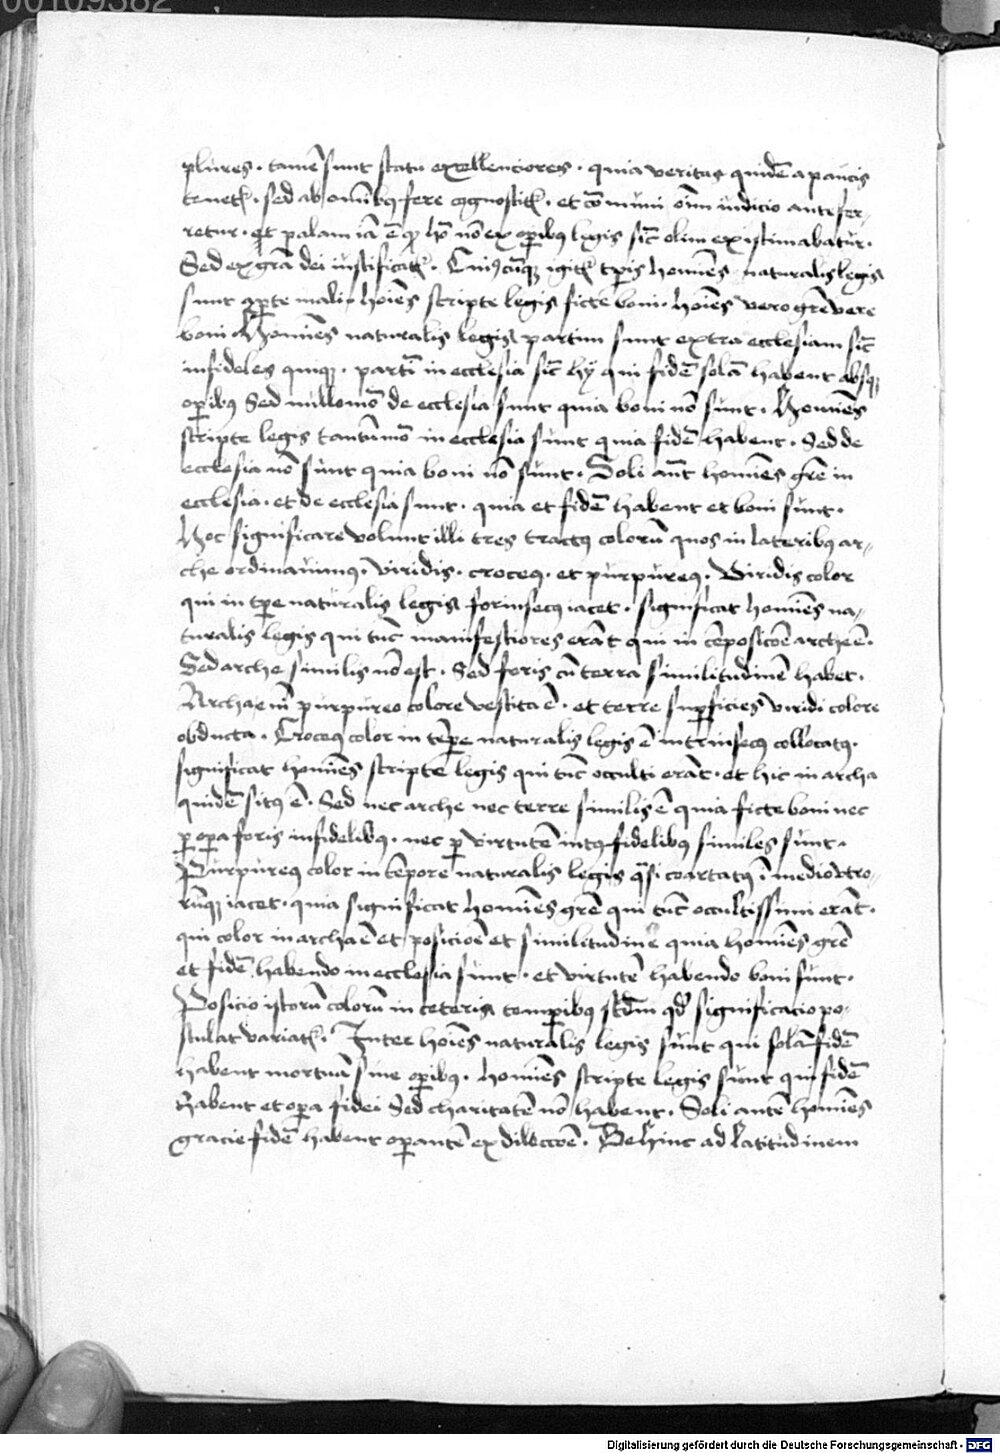 00109382
plures . tamē sunt statu excellenciores . quia veritas quidē a paucis
tenetr̃ . sed ab om̄ibꝯ fere cognoscitr̃ . et cōmuni oīm iudicio antefer-
retur . et palam iā ē qꝫ hō nō ex oꝑibꝯ legis sic̄ olim existimabatur .
Sed ex grā dei iustificatr̃ . Cuiꝯcūqꝫ igitr̃ tꝑis homīes naturalis legis
sunt aꝑte mali . hoīes scripte legis ficte boni . hoīes vero grē vere
boni . Homīes naturalis legis partim sunt extra ecclesiam sic̄
infideles quiqꝫ . partī in ecclesia sic̄ hy qui fidē solā habent absqꝫ
oꝑibꝯ Sed nullomō de ecclesia sunt quia boni nō sunt . Homīes
scripte legis tantūmō in ecclesia sunt quia fidē habent . Sed de
ecclesia nō sunt quia boni nō sunt . Soli aūt homīes grē in
ecclesia . et de ecclesia sunt . quia et fidē habent et boni sunt .
Hoc significare volunt illi tres tractꝯ colorū quos in lateribꝯ ar-
che ordinauimꝯ . viridis . croceꝯ . et purpureꝯ . Viridis color
qui in tꝑe naturalis legis forinsecꝯ iacet . significat homīes na-
turalis legis qui tūc manifestiores erāt qui in cōposicōe arche ē .
Sed arche similis nō est . Sed foris cū terra similitudinē habet .
Archa eī purpureo colore vestita ē . et terre suꝑficies viridi colore
obducta . Croceꝯ color in tēꝑe naturalis legis ē intrinsecꝯ collocatꝯ .
significat homīes scripte legis qui tūc occulti erāt . et hic in archa
quidē sitꝯ ē . Sed nec arche nec terre similis ē quia ficte boni nec
ꝑ oꝑa foris infidelibꝯ . nec ꝑ virtutē intꝯ fidelibꝯ similes sunt .
Purpureꝯ color in tēpore naturalis legis q̄si coartatꝯ ī medio vtro-
rūqꝫ iacet . quia significat homīes grē qui tūc occultissimi erāt .
qui color in archa ē et posicioē et similitudine quia homīes grē
et fidē habendo in ecclesia sunt . et virtutē habendo boni sunt .
Posicio istorū colorū in ceteris temꝑibꝯ scdm̄ qd̄ significacio po-
stulat variatr̃ . Inter hoīes naturalis legis sunt qui solā fidē
habent mortuā sine oꝑibꝯ . homīes scripte legis sunt qui fidē
habent et oꝑa fidei Sed charitatē nō habent . Soli autē homīes
gracie fidē habent oꝑantē ex dilectōe . Dehinc ad latitudinem
Digitalisierung gefördert durch die Deutsche Forschungsgemeinschaft - DFG